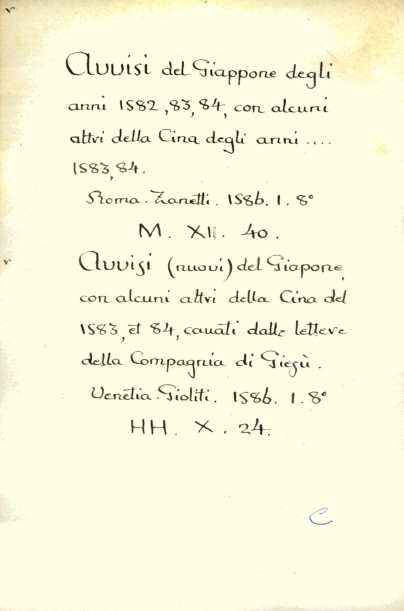 Avvisi del Giappone degli
anni 1582, 83, 84, con alcuni
altri della Cina degli anni ....
1583, 84.
Roma. Zanetti. 1586. 1. 8°
M. XI. 40.
Avvisi (nuovi) del Giapone,
con alcuni altri della Cina del
1583, et 84, cavati dalle lettere
della Compagnia di Giesù.
Venetia. Gioliti. 1586. 1. 8°
HH. X. 24.
C